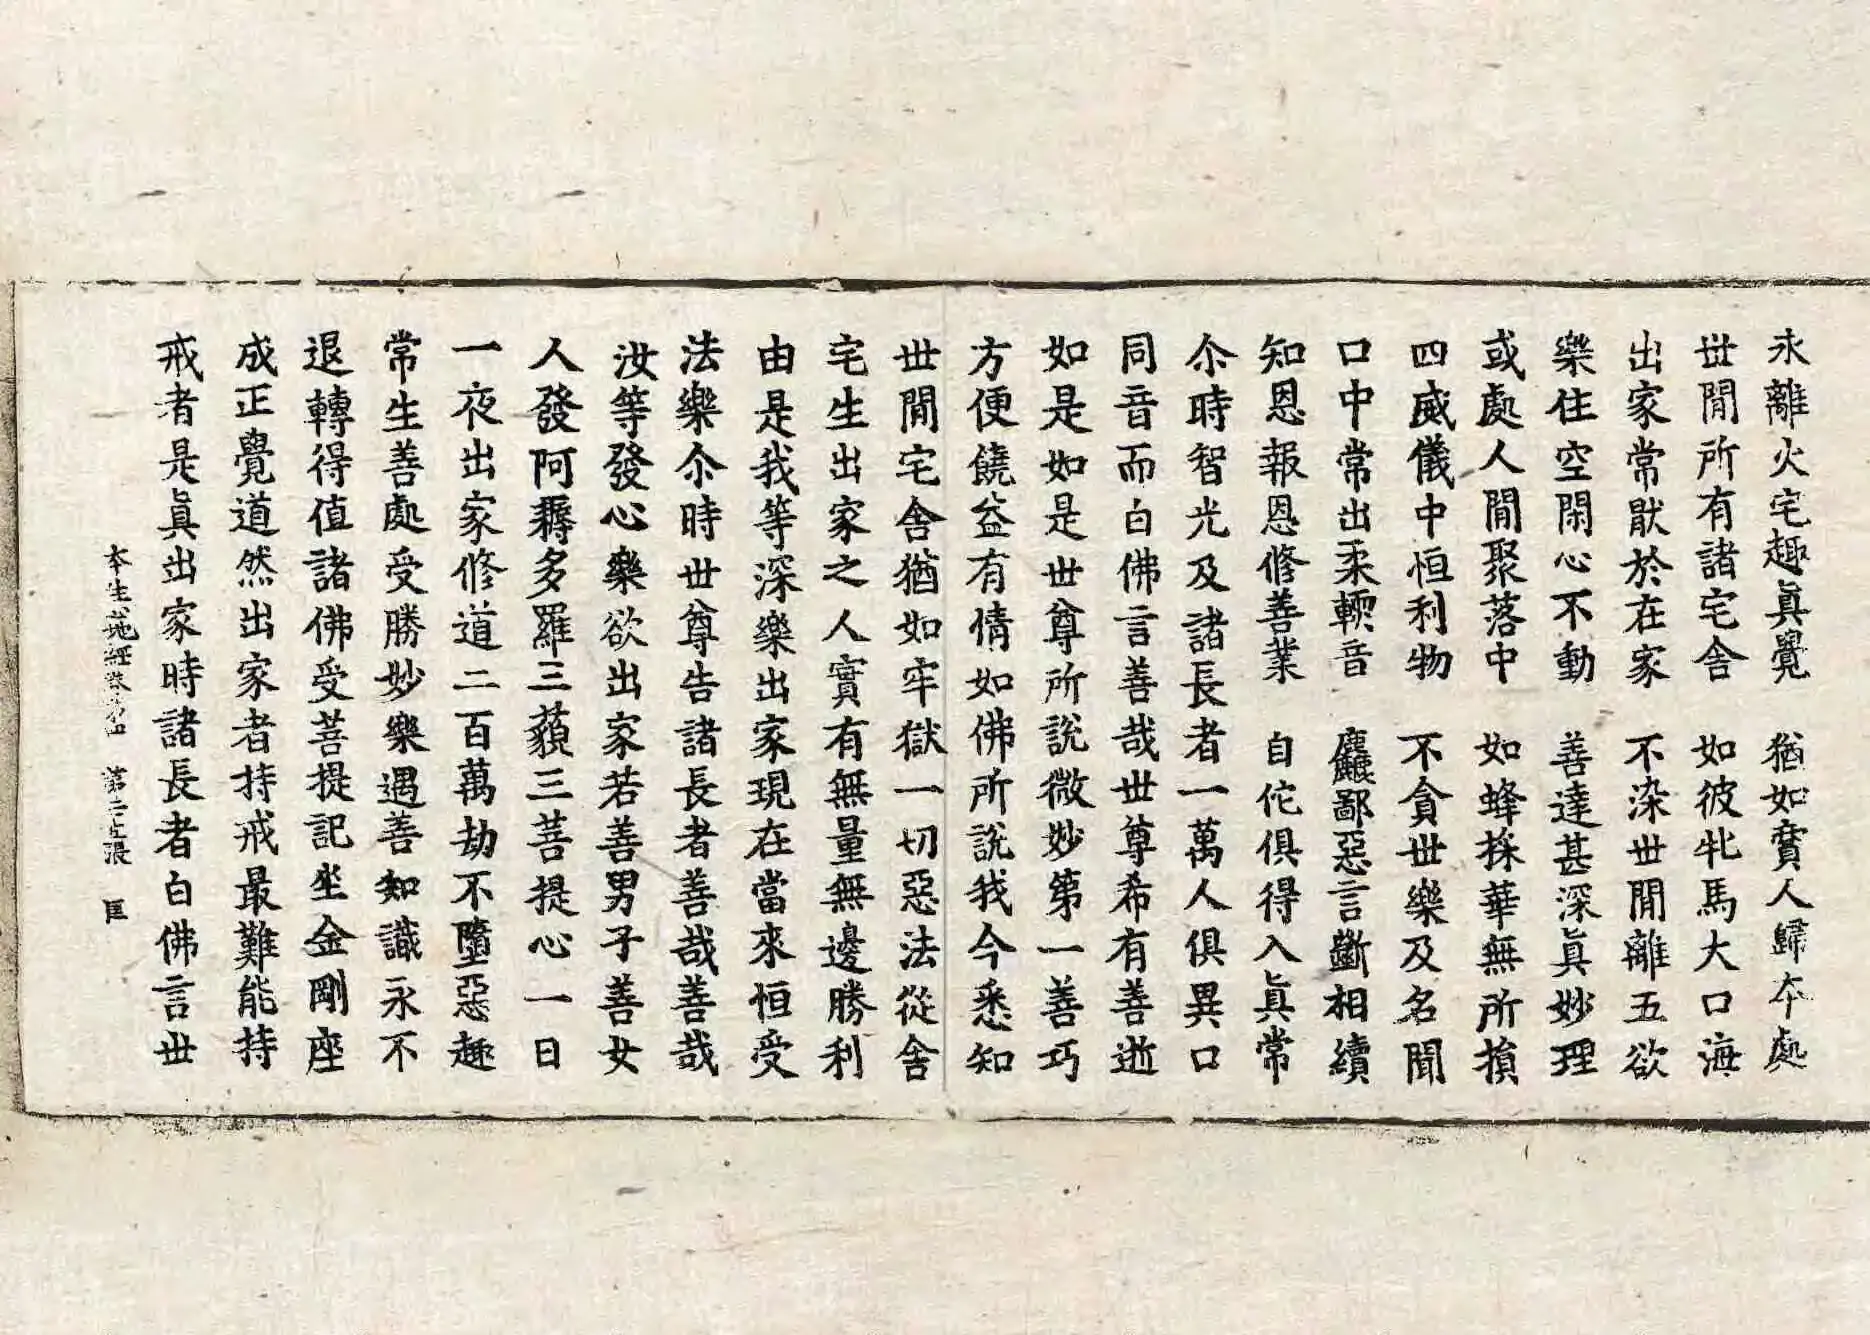 永離火宅趣眞覺　猶如賓人歸夲處
丗閒所有諸宅舍　如彼牝馬大口海
出家常猒於在家　不染丗閒離五欲
樂住空閑心不動　善達甚深眞妙理
或處人閒聚落中　如蜂採華無所損
四威儀中恒利物　不貪丗樂及名聞
口中常出柔輭音　麤鄙惡言斷相續
知恩報恩修善業　自佗俱得入眞常
尒時智光及諸長者一萬人俱異口
同音而白佛言善哉丗尊希有善逝
如是如是丗尊所說微妙第一善巧
方便饒益有情如佛所說我今悉知
丗閒宅舍猶如牢獄一切惡法從舍
宅生出家之人實有無量無邊勝利
由是我等深樂出家現在當來恒受
法樂尒時丗尊告諸長者善哉善哉
汝等發心樂欲出家若善男子善女
人發阿耨多羅三藐三菩提心一日
一夜出家修道二百萬劫不墮惡趣
常生善處受勝妙樂遇善知識永不
退轉得值諸佛受菩提記坐金剛座
成正覺道然出家者持戒最難能持
戒者是眞出家時諸長者白佛言丗
夲生地經卷第四　第二張